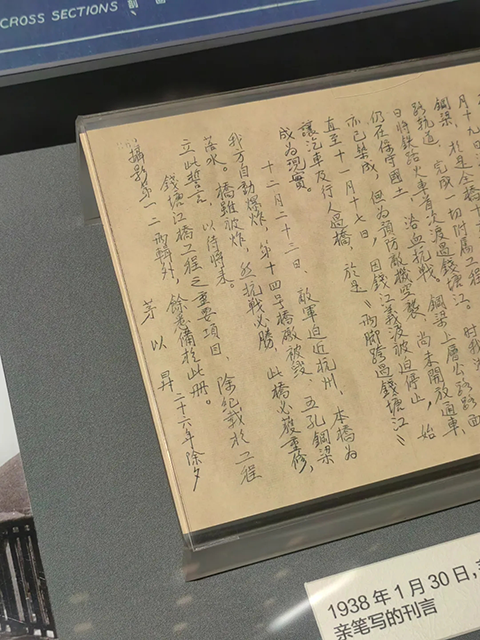 CROSS SECTIONS
月十九日
鋼梁，於是全橋十五
路軌道，完成一切附屬工程
日將鐵路火車首次渡過錢塘江。時我
仍在保守國土，浴血抗戰。鋼梁上層公路路面
亦已築成，但為預防敵機空襲，尚未開放通車，
直至十一月十七日，因錢江義渡被迫停止，始
讓汽車及行人過橋，於是〝兩腳跨過錢塘江〞
成為現實。
十二月二十三日，敵軍迫近杭州，本橋為
我方自動爆炸，第十四号橋墩被毀，五孔鋼梁
落水。橋雖被炸，然抗戰必勝，此橋必獲重修，
立此誓言，以待將來。
錢塘江橋工程之重要項目，除記載於工程
攝影第一二兩輯外，餘悉備於此冊。
茅以昇 二十六年除夕
1938 年 1 月 30 日，
亲笔写的刊言